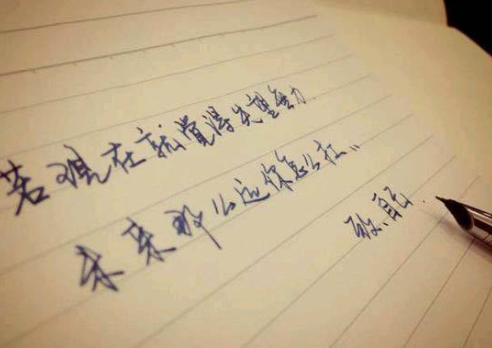 若现在就觉得失望无力
未来那么远你怎么扛..
致.自己.